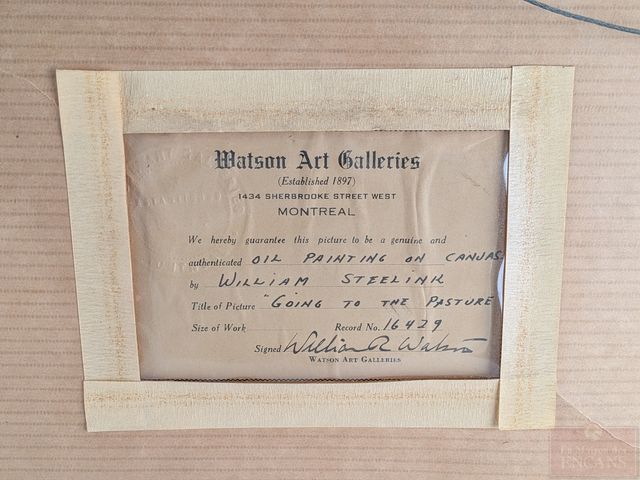 Watson Art Galleries
(Established 1897)
1434 SHERBROOKE STREET WEST
MONTREAL
We hereby guarantee this picture to be a genuine and
authenticated OIL PAINTING ON CANVAS
by WILLIAM STEELINK
Title of Picture "GOING TO THE PASTURE
Size of Work Record No. 16429
Signed William R Watson
WATSON ART GALLERIES
ENCANS